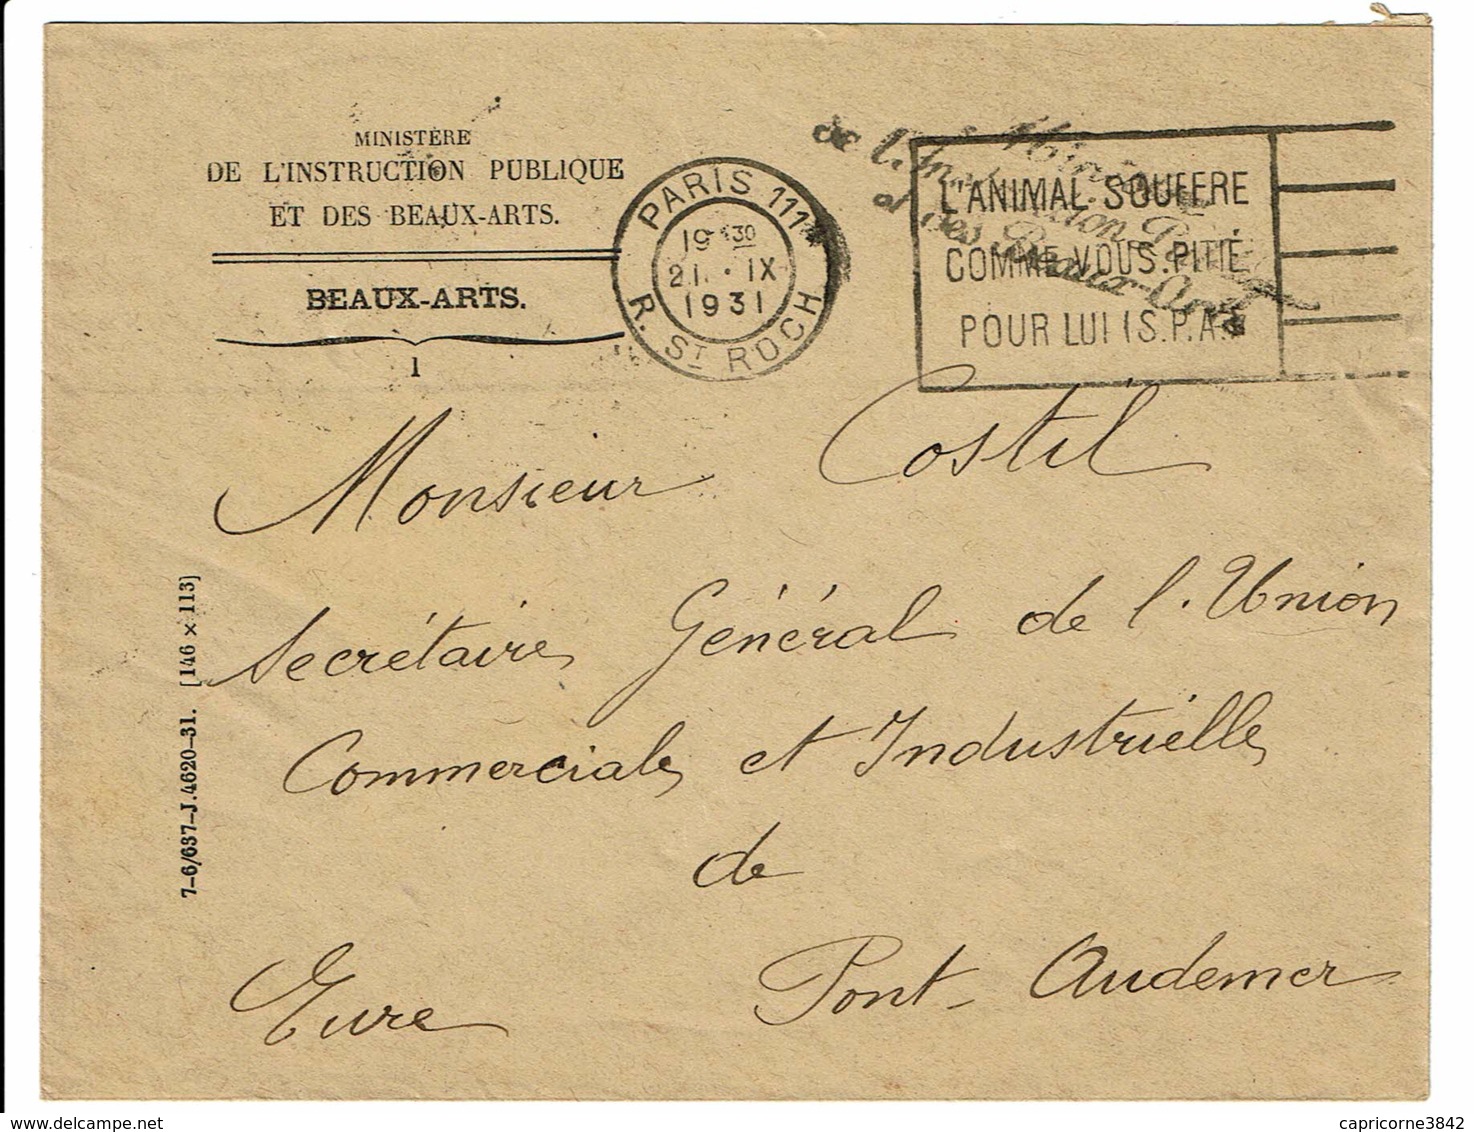 MINISTÈRE
DE L'INSTRUCTION PUBLIQUE
ET DES BEAUX-ARTS.
BEAUX-ARTS.
1
PARIS 111
19 30
21 · IX
1931
R. ST ROCH
de l'Instruction
et des Beaux-Arts
L'ANIMAL SOUFFRE
COMME VOUS. PITIÉ
POUR LUI (S.P.A.)
Monsieur Costil
Secrétaire Général de l'Union
Commerciale et Industrielle
de
Pont-Audemer
Eure
7-6/637-J.4620-31. [146 × 113]
capricorne3842